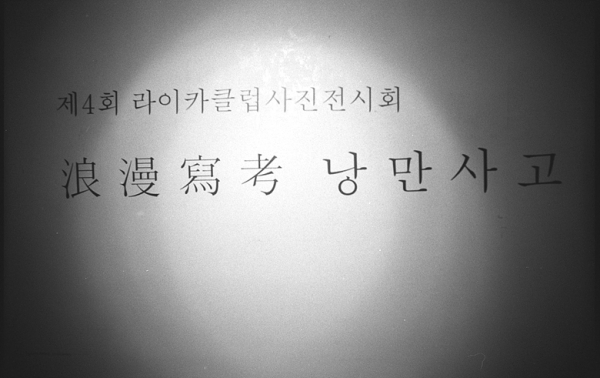 제4회 라이카클럽사진전시회
浪漫寫考 낭만사고